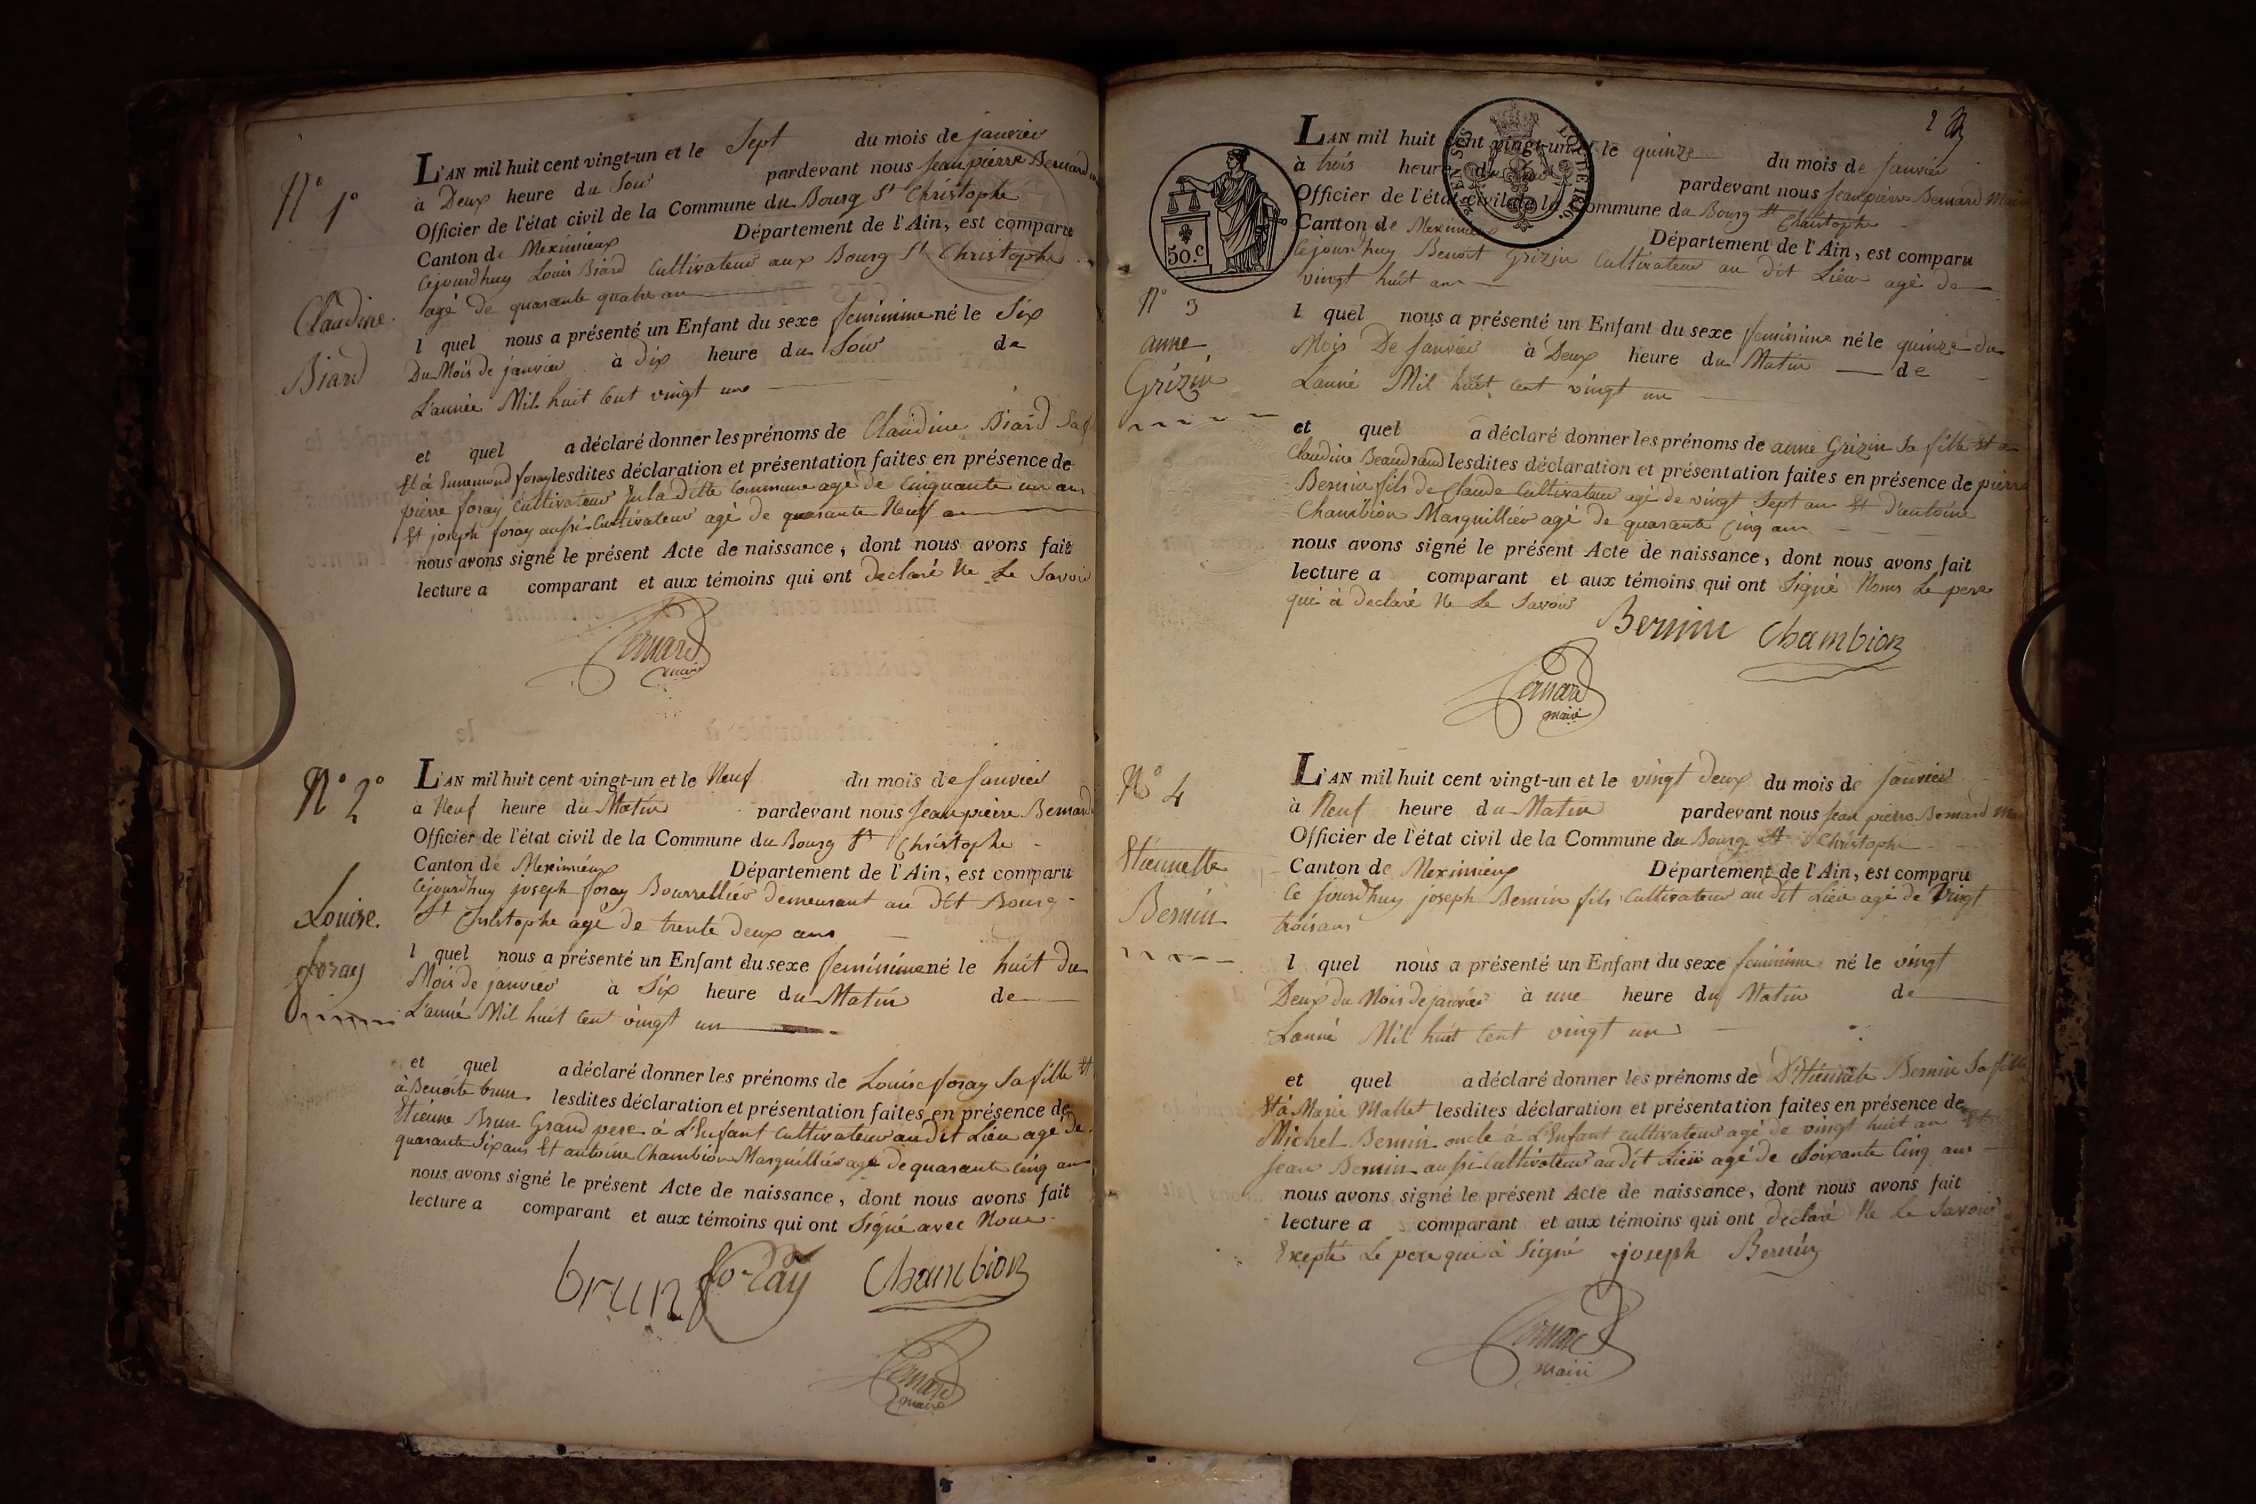 N° 1°
Claudine
Biard
L'AN mil huit cent vingt-un et le Sept du mois de janvier
à Deux heure du Soir pardevant nous jean pierre Bernard
Officier de l'état civil de la Commune du Bourg St Christophe
Canton de Meximieux Département de l'Ain, est comparu
Cejourdhuy Louis Biard Cultivateur aux Bourg St Christophe
agé de quarante quatre an
l quel nous a présenté un Enfant du sexe feminime né le Six
Du Mois de janvier à dix heure du Soir de
L'année Mil huit Cent vingt un
et quel a déclaré donner les prénoms de Claudine Biard Sa
Et à Ennemond foray lesdites déclaration et présentation faites en présence de
pierre foray Cultivateur En la ditte Commune agé de Cinquante un an
Et joseph foray aussi Cultivateur agé de quarante Neuf an
nous avons signé le présent Acte de naissance, dont nous avons fait
lecture a comparant et aux témoins qui ont declaré Ne Le Savoir
Bernard
maire
N° 2°
Louise
foray
L'AN mil huit cent vingt-un et le Neuf du mois de Janvier
a Neuf heure du Matin pardevant nous Jean pierre Bernard
Officier de l'état civil de la Commune du Bourg St Christophe
Canton de Meximieux Département de l'Ain, est comparu
Cejourdhuy joseph foray Bourrellier demeurant au dit Bourg
St Christophe agé de trente deux ans
l quel nous a présenté un Enfant du sexe feminime né le huit du
Mois de janvier à Six heure du Matin de
L'anné Mil huit Cen vingt un
et quel a déclaré donner les prénoms de Louise foray Sa fille Et
à Benoite brun lesdites déclaration et présentation faites en présence de
Etienne Brun Grand pere à L'Enfant Cultivateur au dit Lieu agé de
quarante Six ans Et antoine Chambion Marguillier agé de quarante Cinq an
nous avons signé le présent Acte de naissance, dont nous avons fait
lecture a comparant et aux témoins qui ont Signé avec Nous
brun foray Chambion
Bernard
maire
2
50.c
N° 3
anne
Grizin
L'AN mil huit cent vingt-un et le quinze du mois de Janvier
à trois heure du Soir pardevant nous Jean pierre Bernard Maire
Officier de l'état civil de la Commune du Bourg St Christophe
Canton de Meximieux Département de l'Ain, est comparu
Cejourdhuy Benoit Grizin Cultivateur au dit Lieu agé de
vingt huit an
l quel nous a présenté un Enfant du sexe feminime né le quinze du
Mois De Janvier à Deux heure du Matin de
L'anné Mil huit Cent vingt un
et quel a déclaré donner les prénoms de anne Grizin Sa fille Et a
Claudine Beaudrand lesdites déclaration et présentation faites en présence de pierre
Bernin fils de Claude Cultivateur agé de vingt Sept an Et d'antoine
Chambion Marguillier agé de quarante Cinq an
nous avons signé le présent Acte de naissance, dont nous avons fait
lecture a comparant et aux témoins qui ont Signé Nous Le pere
qui à declaré Ne Le Savoir
Bernin Chambion
Bernard
maire
N° 4
Etiennette
Bernin
L'AN mil huit cent vingt-un et le vingt deux du mois de Janvier
à Neuf heure du Matin pardevant nous Jean pierre Bernard Maire
Officier de l'état civil de la Commune du Bourg St Christophe
Canton de Meximieux Département de l'Ain, est comparu
Ce Jourdhuy joseph Bernin fils Cultivateur au dit Lieu agé de Vingt
trois ans
l quel nous a présenté un Enfant du sexe feminime né le vingt
Deux du Mois de janvier à une heure du Matin de
Lanné Mil huit Cent vingt un
et quel a déclaré donner les prénoms de Bernin Sa fille
Et à Marie Mallet lesdites déclaration et présentation faites en présence de
Michel Bernin oncle à L'Enfant cultivateur agé de vingt huit an Et
Jean Bernin aussi Cultivateur au dit Lieu agé de Soixante Cinq ans
nous avons signé le présent Acte de naissance, dont nous avons fait
lecture a comparant et aux témoins qui ont declaré Ne Le Savoir
Exepté Le pere qui à Signé joseph Bernin
Bernard
maire